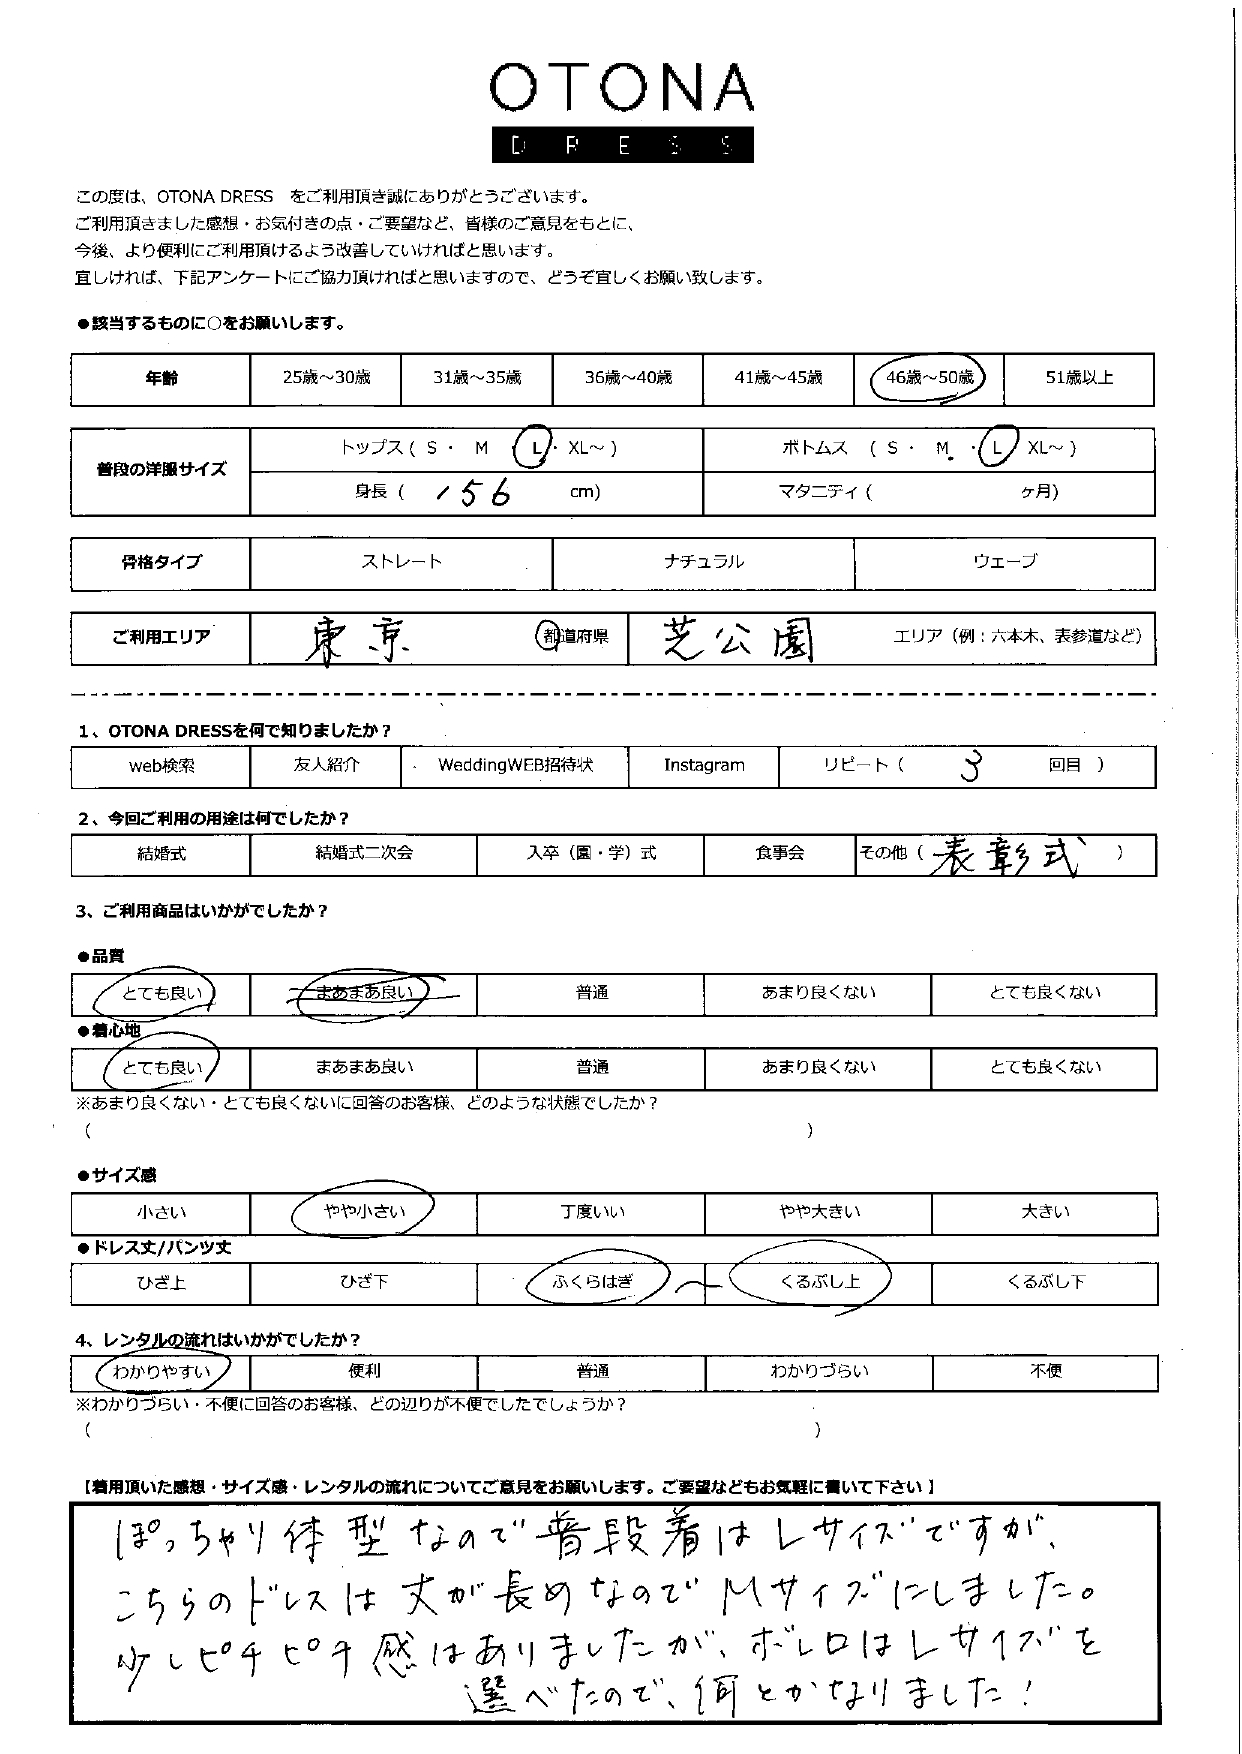 OTONA
DRESS
この度は、OTONA DRESS をご利用頂き誠にありがとうございます。
ご利用頂きました感想・お気付きの点・ご要望など、皆様のご意見をもとに、
今後、より便利にご利用頂けるよう改善していければと思います。
宜しければ、下記アンケートにご協力頂ければと思いますので、どうぞ宜しくお願い致します。
●該当するものに○をお願いします。
年齢 25歳～30歳 31歳～35歳 36歳～40歳 41歳～45歳 46歳～50歳 51歳以上
普段の洋服サイズ トップス ( S ・ M ・ L ・ XL～ ) ボトムス ( S ・ M ・ L XL～ )
身長 ( 156 cm) マタニティ ( ヶ月)
骨格タイプ ストレート ナチュラル ウェーブ
ご利用エリア 東京 都道府県 芝公園 エリア（例：六本木、表参道など）
1、OTONA DRESSを何で知りましたか？
web検索 友人紹介 WeddingWEB招待状 Instagram リピート ( 3 回目 )
2、今回ご利用の用途は何でしたか？
結婚式 結婚式二次会 入卒（園・学）式 食事会 その他 ( 表彰式 )
3、ご利用商品はいかがでしたか？
●品質
とても良い まあまあ良い 普通 あまり良くない とても良くない
●着心地
とても良い まあまあ良い 普通 あまり良くない とても良くない
※あまり良くない・とても良くないに回答のお客様、どのような状態でしたか？
( )
●サイズ感
小さい やや小さい 丁度いい やや大きい 大きい
●ドレス丈/パンツ丈
ひざ上 ひざ下 ふくらはぎ ～ くるぶし上 くるぶし下
4、レンタルの流れはいかがでしたか？
わかりやすい 便利 普通 わかりづらい 不便
※わかりづらい・不便に回答のお客様、どの辺りが不便でしたでしょうか？
( )
【着用頂いた感想・サイズ感・レンタルの流れについてご意見をお願いします。ご要望などもお気軽に書いて下さい】
ぽっちゃり体型なので普段着はLサイズですが、
こちらのドレスは丈が長めなのでMサイズにしました。
少しピチピチ感はありましたが、ボレロはLサイズを
選べたので、何とかなりました！